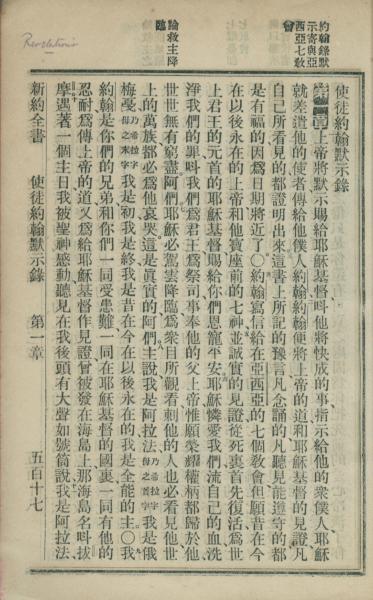 約翰錄默
示寄與亞
西亞七教
會
論救主降
臨
Revelations
使徒約翰默示錄
第一章上帝將默示賜給耶穌基督呌他將快成的事指示給他的衆僕人耶穌
就差遣他的使者傳給他僕人約翰約翰便將上帝的道和耶穌基督的見證凡
自己所看見的都證明出來這書上所記的豫言凡念誦的凡聽見能遵守的都
是有福的因爲日期將近了〇約翰寫信給在亞西亞的七個敎會但願昔在今
在以後永在的上帝和他寶座前的七神並誠實的見證從死裏首先復活爲世
上君王的元首的耶穌基督賜給你們恩寵平安耶穌憐愛我們流自己的血洗
淨我們的罪呌我們爲君王爲祭司事奉他的父上帝惟願榮耀權柄都歸於他
世世無有窮盡阿們耶穌必駕雲降臨爲衆目所觀看刺他的人也必看見他世
上的萬族都必爲他哀哭這是眞實的阿們主說我是阿拉法乃希拉字母之首字我是俄
梅戞乃希拉字母之末字我是初我是終我是昔在今在以後永在的我是全能的主〇我
約翰是你們的兄弟和你們一同受患難一同在耶穌基督的國裏一同有他的
忍耐爲傳上帝的道又爲給耶穌基督作見證曾被發在海島上那海島名呌拔
摩遇著一個主日我被聖神感動聽見在我後頭有大聲如號筒說我是阿拉法
新約全書 使徒約翰默示錄 第一章 五百十七